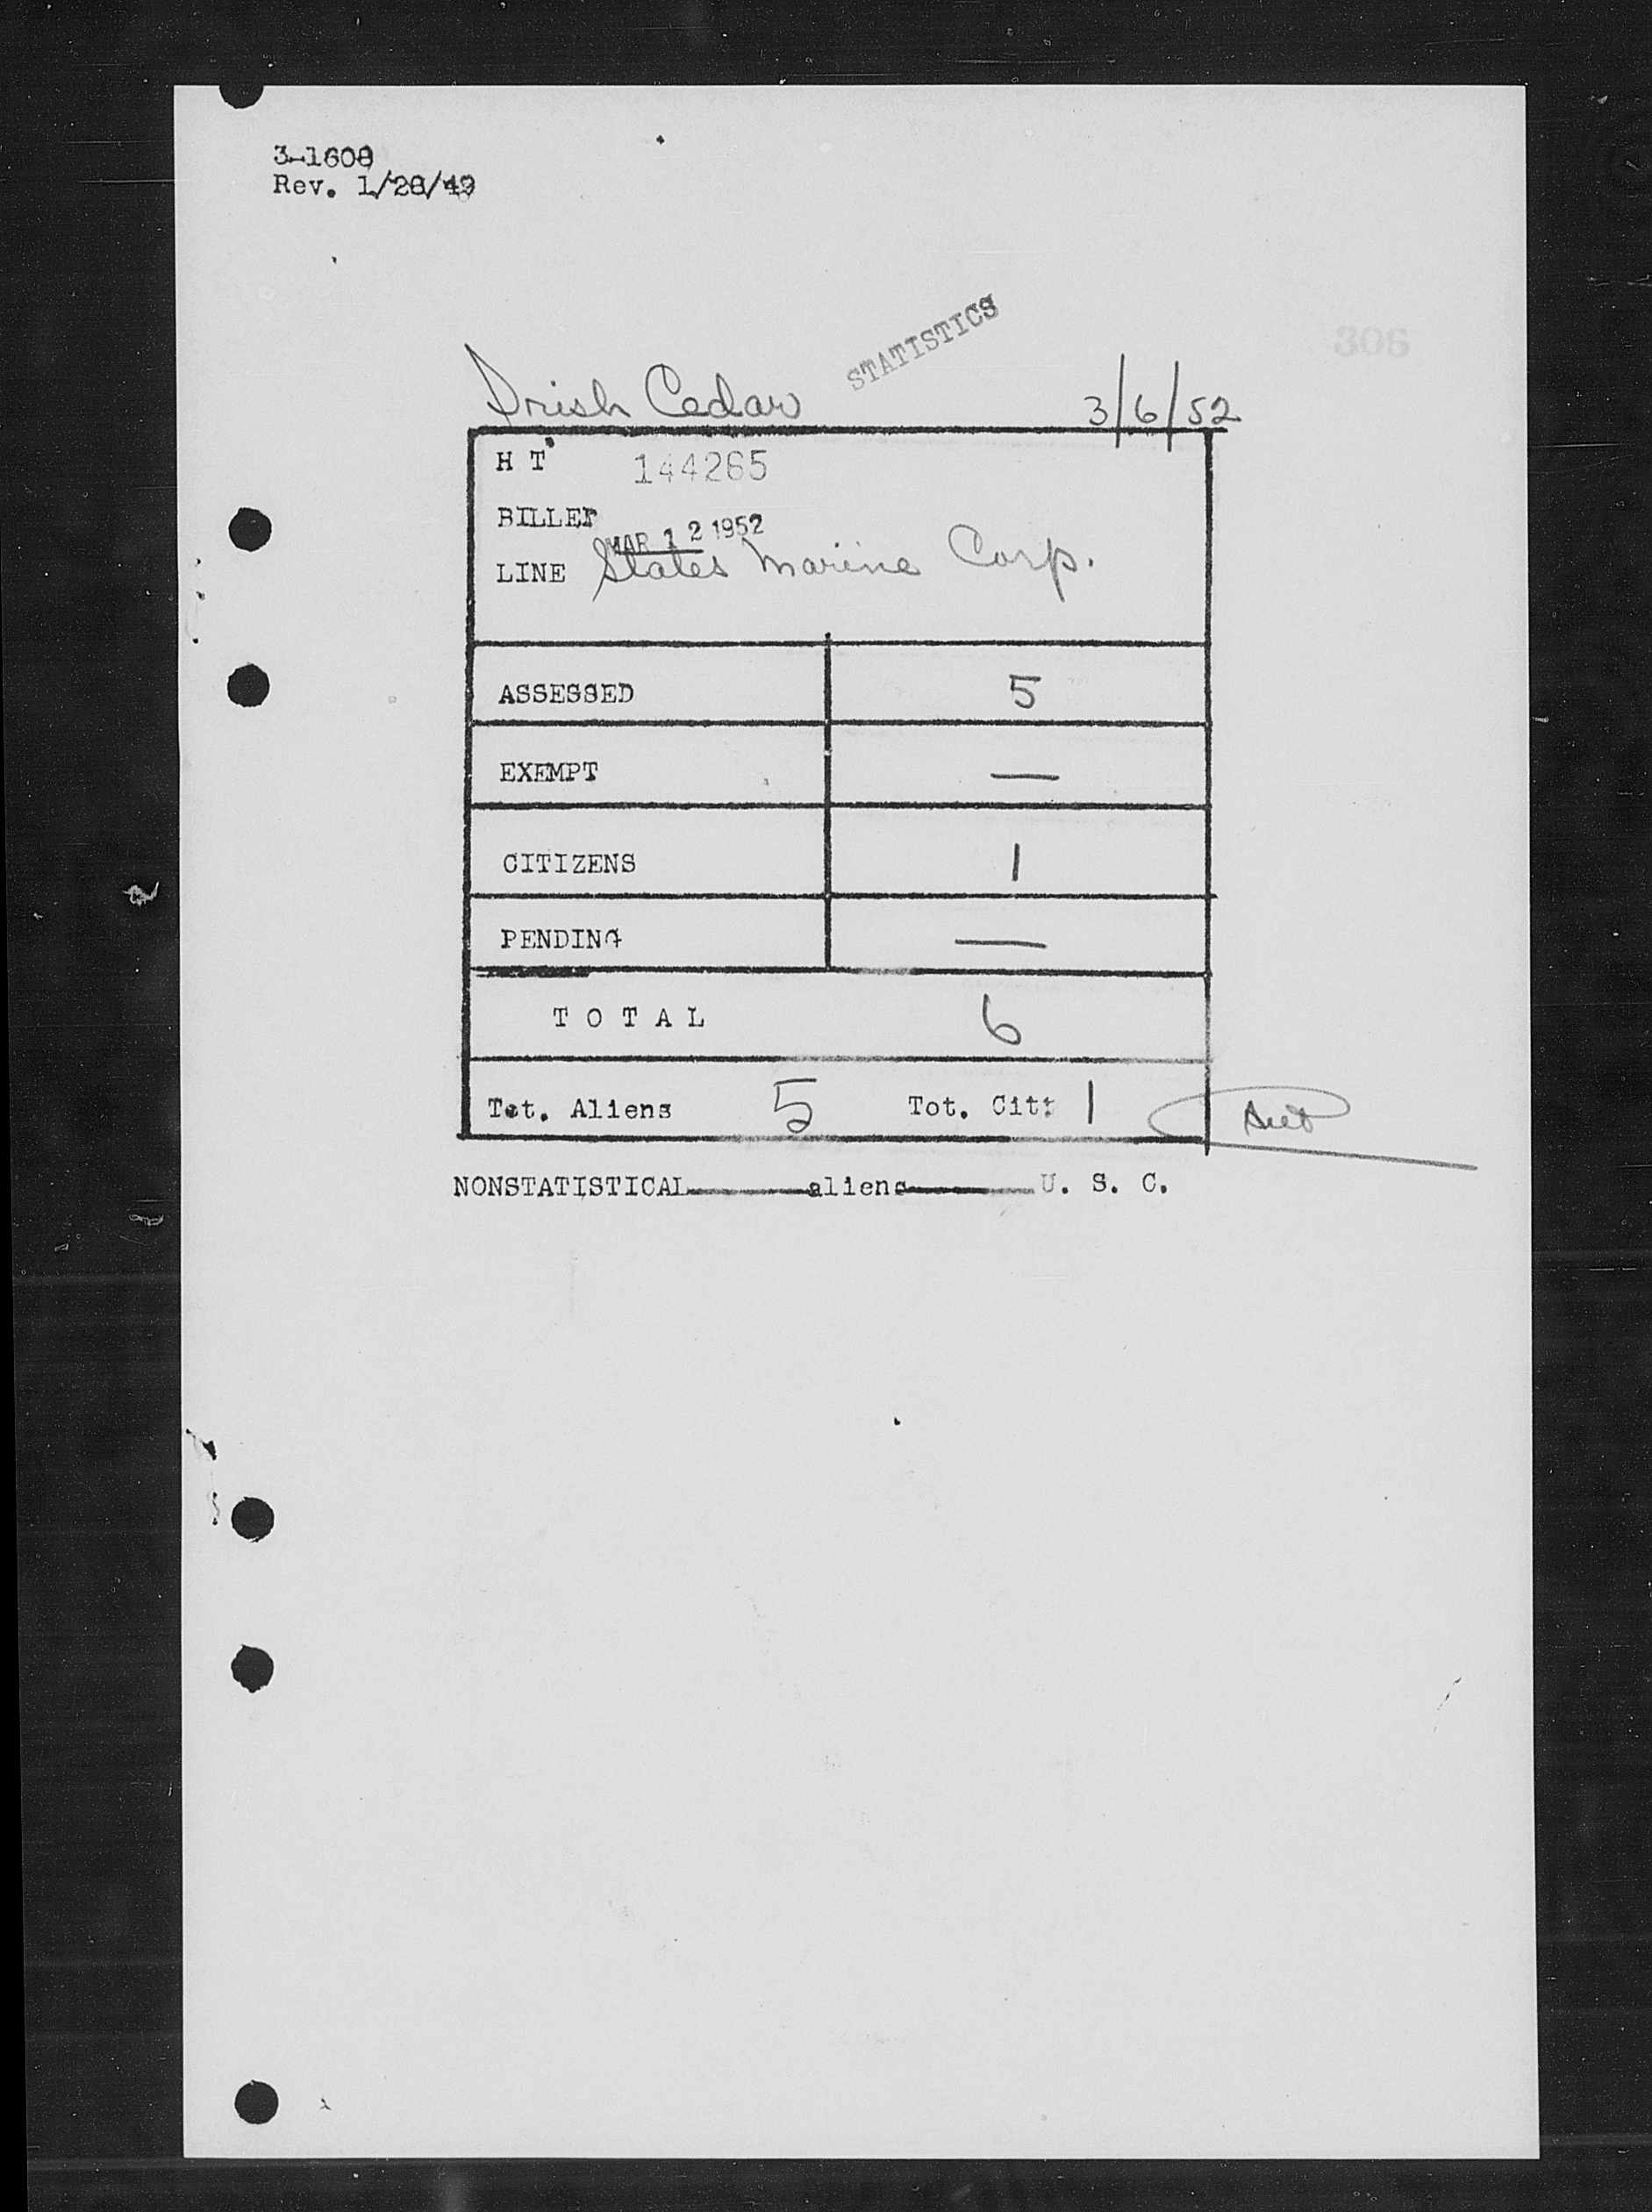 3-1608
Rev. 1/28/49
306
STATISTICS
Irish Cedar 3/6/52
H T 144265
BILLET MAR 12 1952
LINE States Marine Corp.
ASSESSED 5
EXEMPT —
CITIZENS 1
PENDING —
T O T A L 6
Tot. Aliens 5 Tot. Cit: 1
NONSTATISTICAL aliens U. S. C.